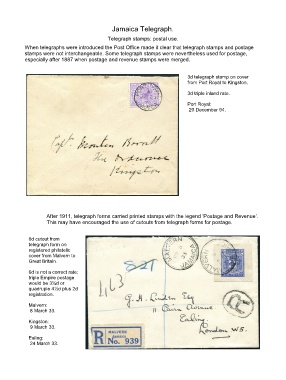 Jamaica Telegraph.
Telegraph stamps: postal use.
When telegraphs were introduced the Post Office made it clear that telegraph stamps and postage
stamps were not interchangeable. Some telegraph stamps were nevertheless used for postage,
especially after 1887 when postage and revenue stamps were merged.
3d telegraph stamp on cover
from Port Royal to Kingston.
3d triple inland rate.
Port Royal:
29 December 94.
Capt
Kingston
After 1911, telegraph forms carried printed stamps with the legend 'Postage and Revenue'.
This may have encouraged the use of cutouts from telegraph forms for postage.
6d cutout from
telegraph form on
registered philatelic
cover from Malvern to
Great Britain.
6d is not a correct rate;
triple Empire postage
would be
registration.
Malvern:
8 March 33.
Kingston:
9 March 33.
Ealing:
24 March 33.
MALVERN
JAMAICA
G. H. Linden Esq
11 Cairn Avenue
Ealing
London W5.
R
MALVERN
Jamaica
No. 939